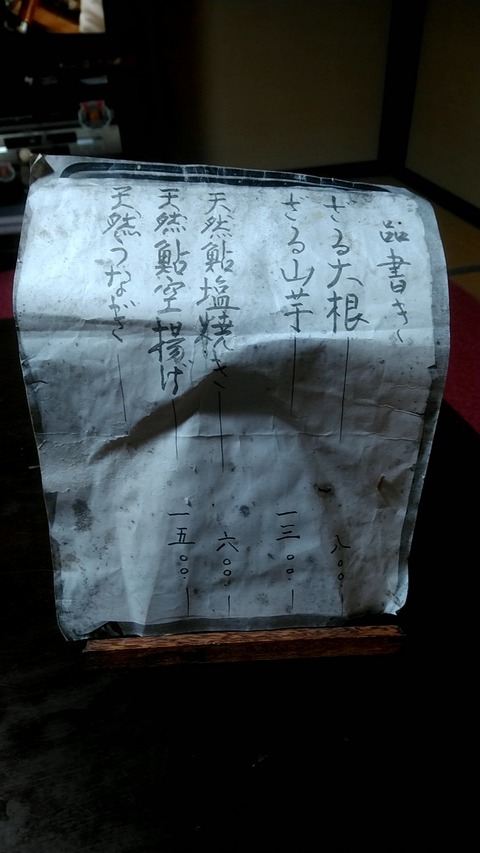 品書き
ざる大根 八〇〇
ざる山芋 一三〇〇
天然鮎塩焼き 六〇〇
天然鮎空揚げ 一五〇〇
天然うなぎ